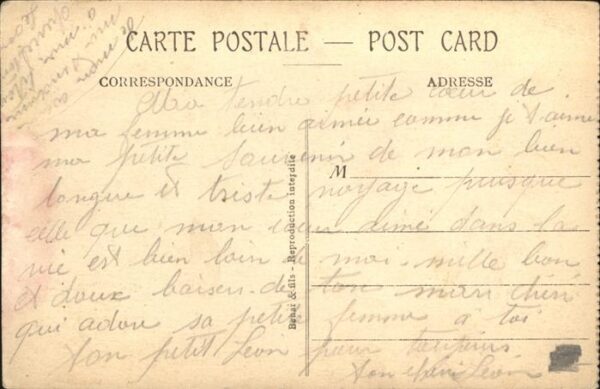 CARTE POSTALE — POST CARD
CORRESPONDANCE
ADRESSE
M
Behar & fils - Reproduction interdite
Ma tendre petite cœur de
ma femme bien aimée comme je t'aime
ma petite souvenir de mon bien
longue et triste voyage puisque
elle que mon cœur aimé dans la
vie est bien loin de moi. mille bon
et doux baiser de ton mari chéri
qui adore sa petite femme a toi
ton petit Leon pour toujours
ton Leon